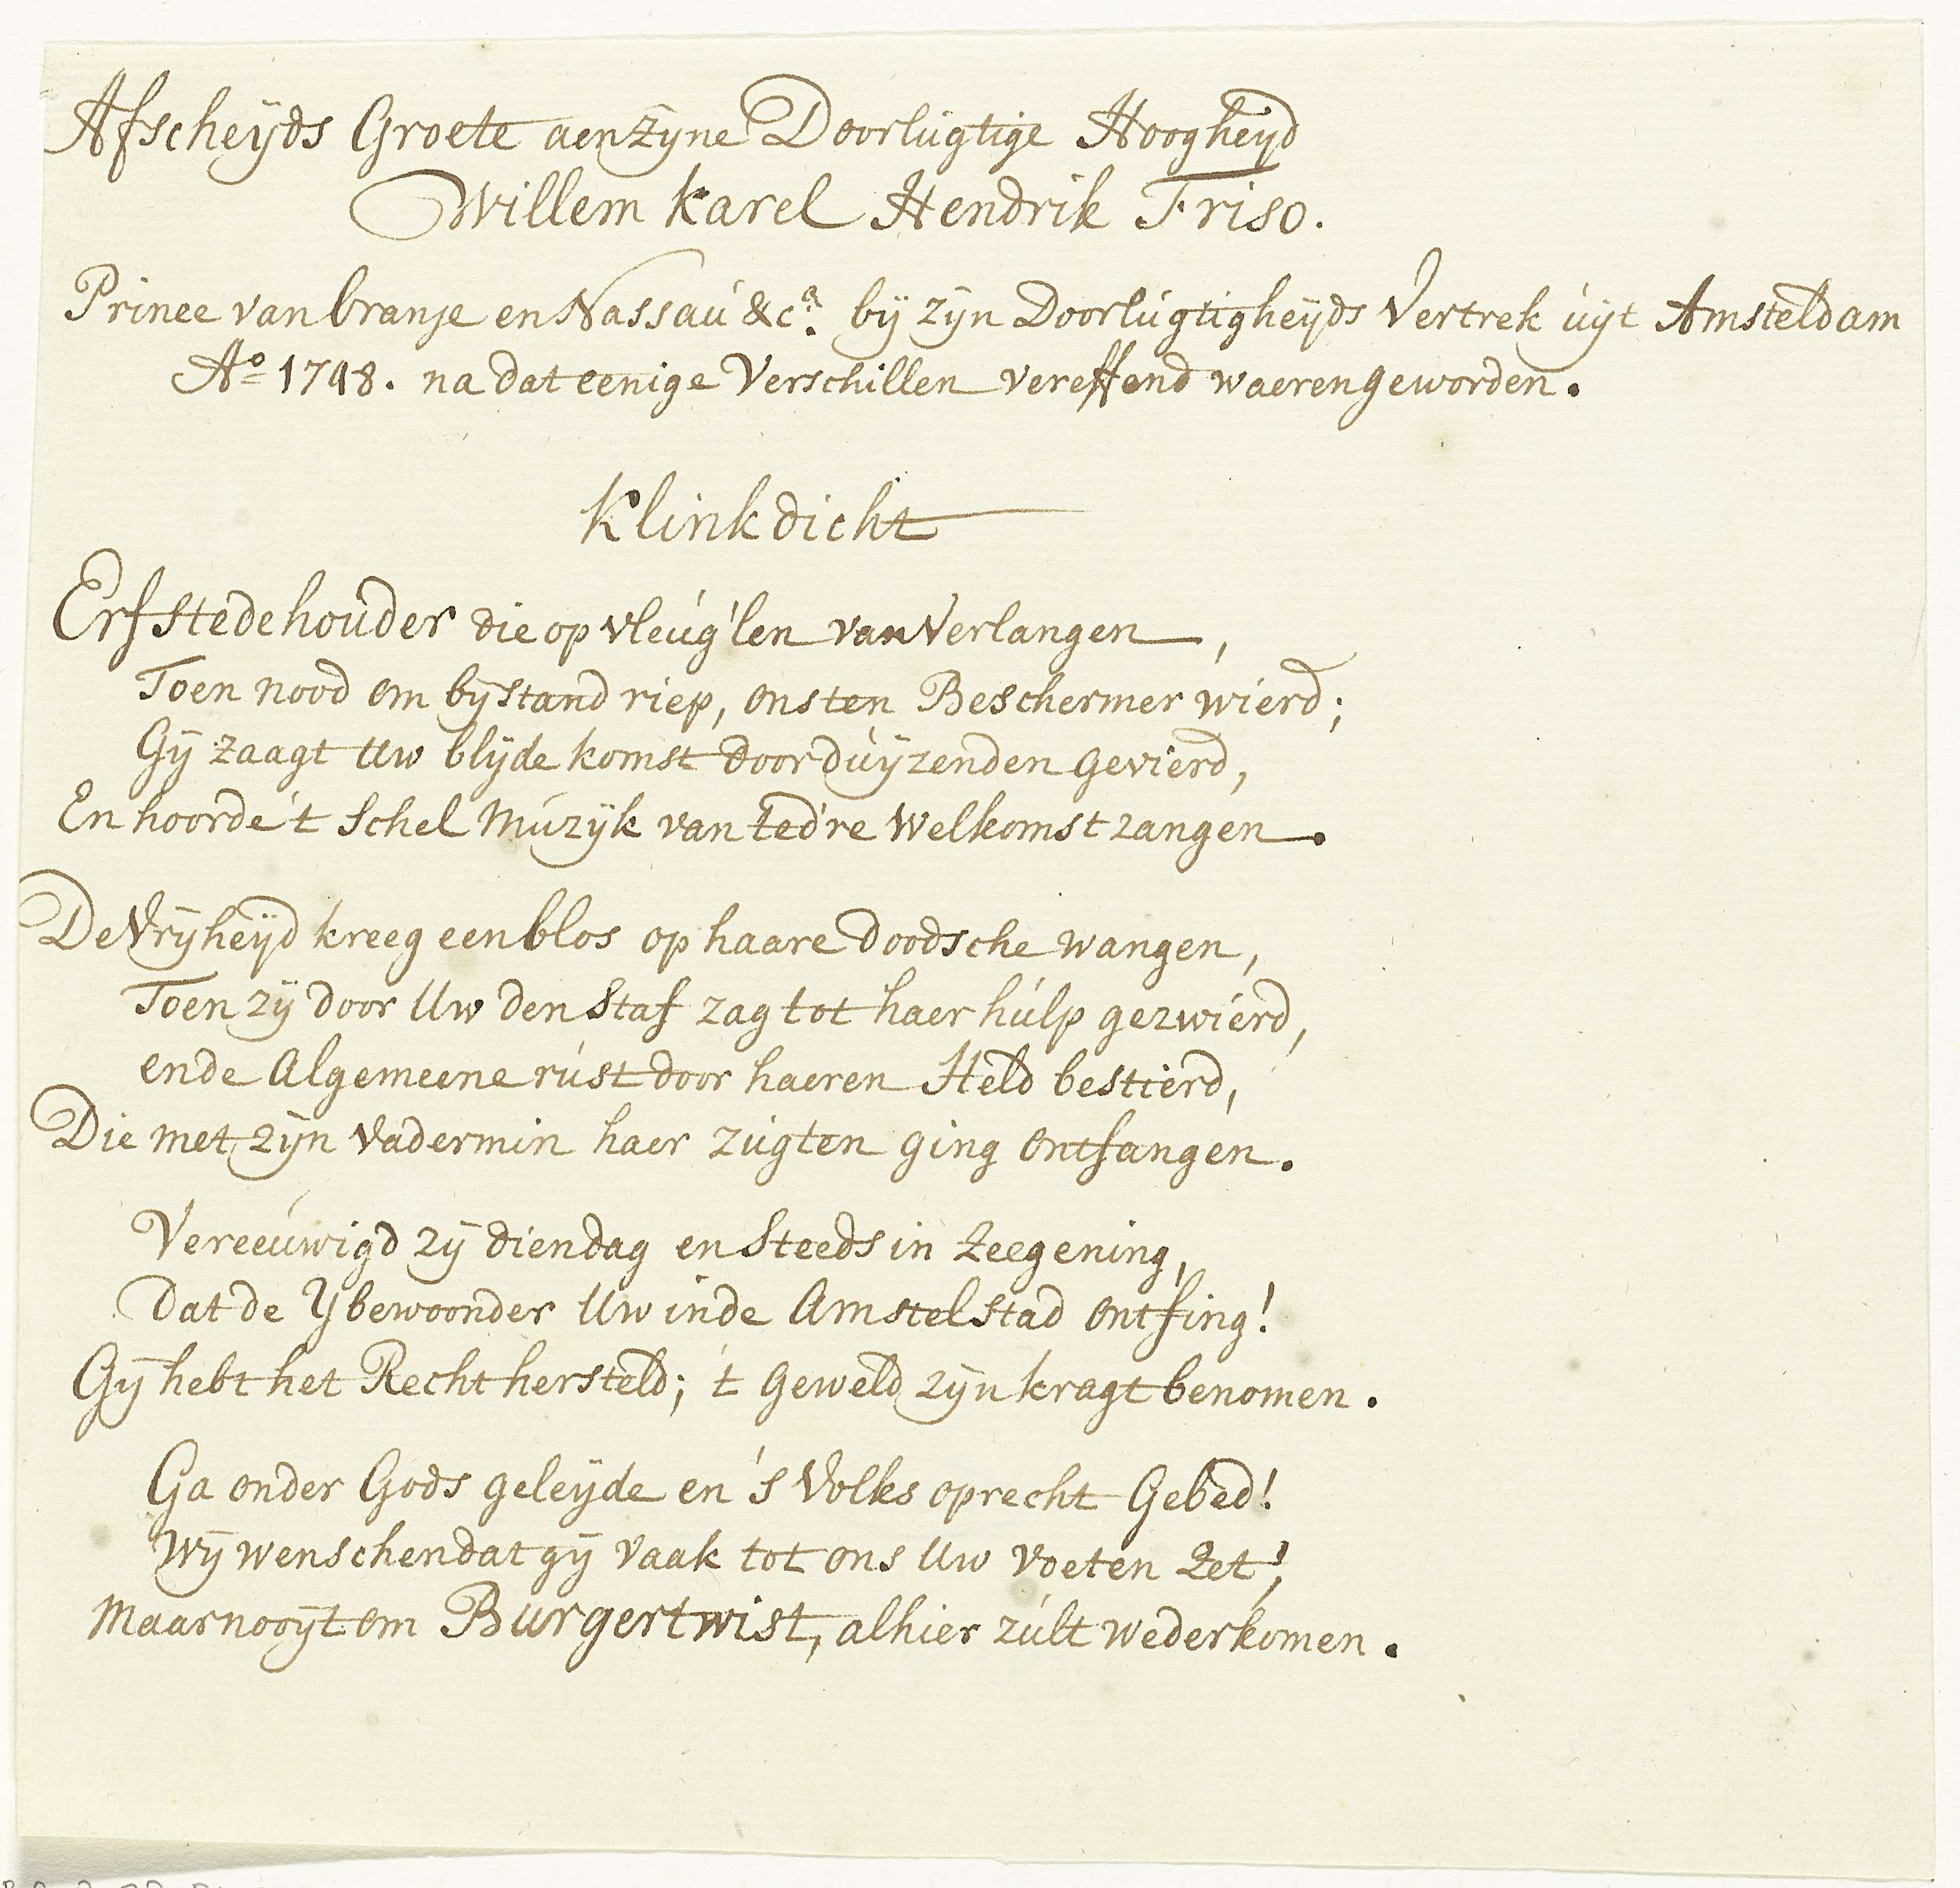 Afscheÿds Groete aen zÿne Doorlúgtige Hoogheÿd
Willem Karel Hendrik Friso.
Prince van Oranje en Nassaú &cª. bÿ zÿn Doorlúgtigheÿds Vertrek úÿt Amsteldam
Aº 1748. na dat eenige Verschillen vereffend waeren geworden.
Klinkdicht
Erfstedehouder die op vleúg'len van Verlangen,
Toen nood om bÿstand riep, ons ten Beschermer wierd;
Gÿ zaagt Uw blÿde komst door dúÿzenden gevierd,
En hoorde 't schel Múzÿk van ted're Welkomst zangen.
De Vrÿheÿd kreeg een blos op haare doodsche wangen,
Toen zÿ door Uw den Staf zag tot haer húlp gezwierd,
en de Algemeene rúst door haeren Held bestierd,
Die met zÿn Vadermin haer zúgten ging ontfangen.
Vereeúwigd zÿ dien dag en Steeds in Zeegening,
Dat de Ybewoonder Uw in de Amstelstad ontfing!
Gÿ hebt het Recht hersteld; 't Geweld zÿn kragt benomen.
Ga onder Gods geleÿde en 's Volks oprecht Gebed!
Wÿ wenschen dat gÿ vaak tot ons Uw voeten Zet!,
Maar nooÿt om Burgertwist, alhier zúlt wederkomen.